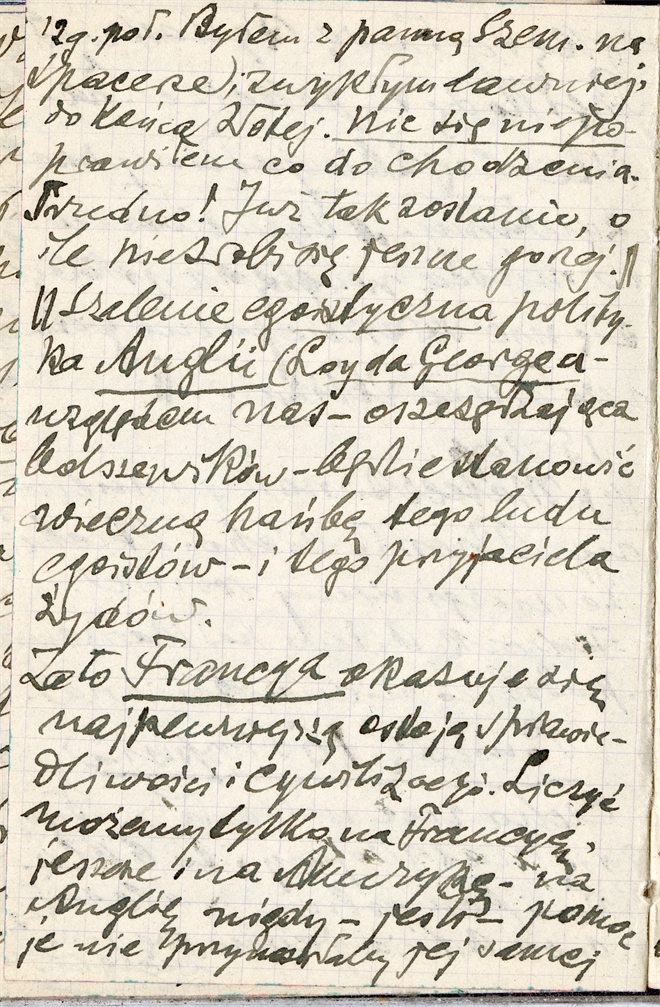 12g. poł. Byłem z panną Szem. na
spacerze, zwykłym dawniej,
do końca Złotej. Nic się nie po-
prawiłem co do chodzenia.
Trudno! Już tak zostanie, o
ile nie zrobi się jeszcze gorzej.
Szalenie egoistyczna polity-
ka Anglii (Loyda Georgea-
względem nas - oszczędzająca
bolszewików - będzie stanowić
wieczną hańbę tego ludu
egoistów - i tego przyjaciela
żydów.
Zato Francya okazuje się
najpewniejszą ostoją sprawie-
dliwości i cywilizacyi. Liczyć
możemy tylko na Francyę,
jeszcze i na Amerykę - na
Anglię nigdy - jeśli - pomoc
je nie przyniosłaby jej samej